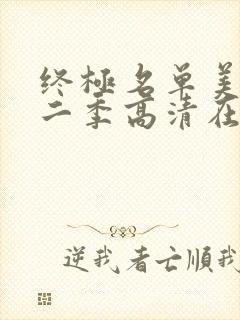 终極名单美
二季高清在
逆我者亡順我